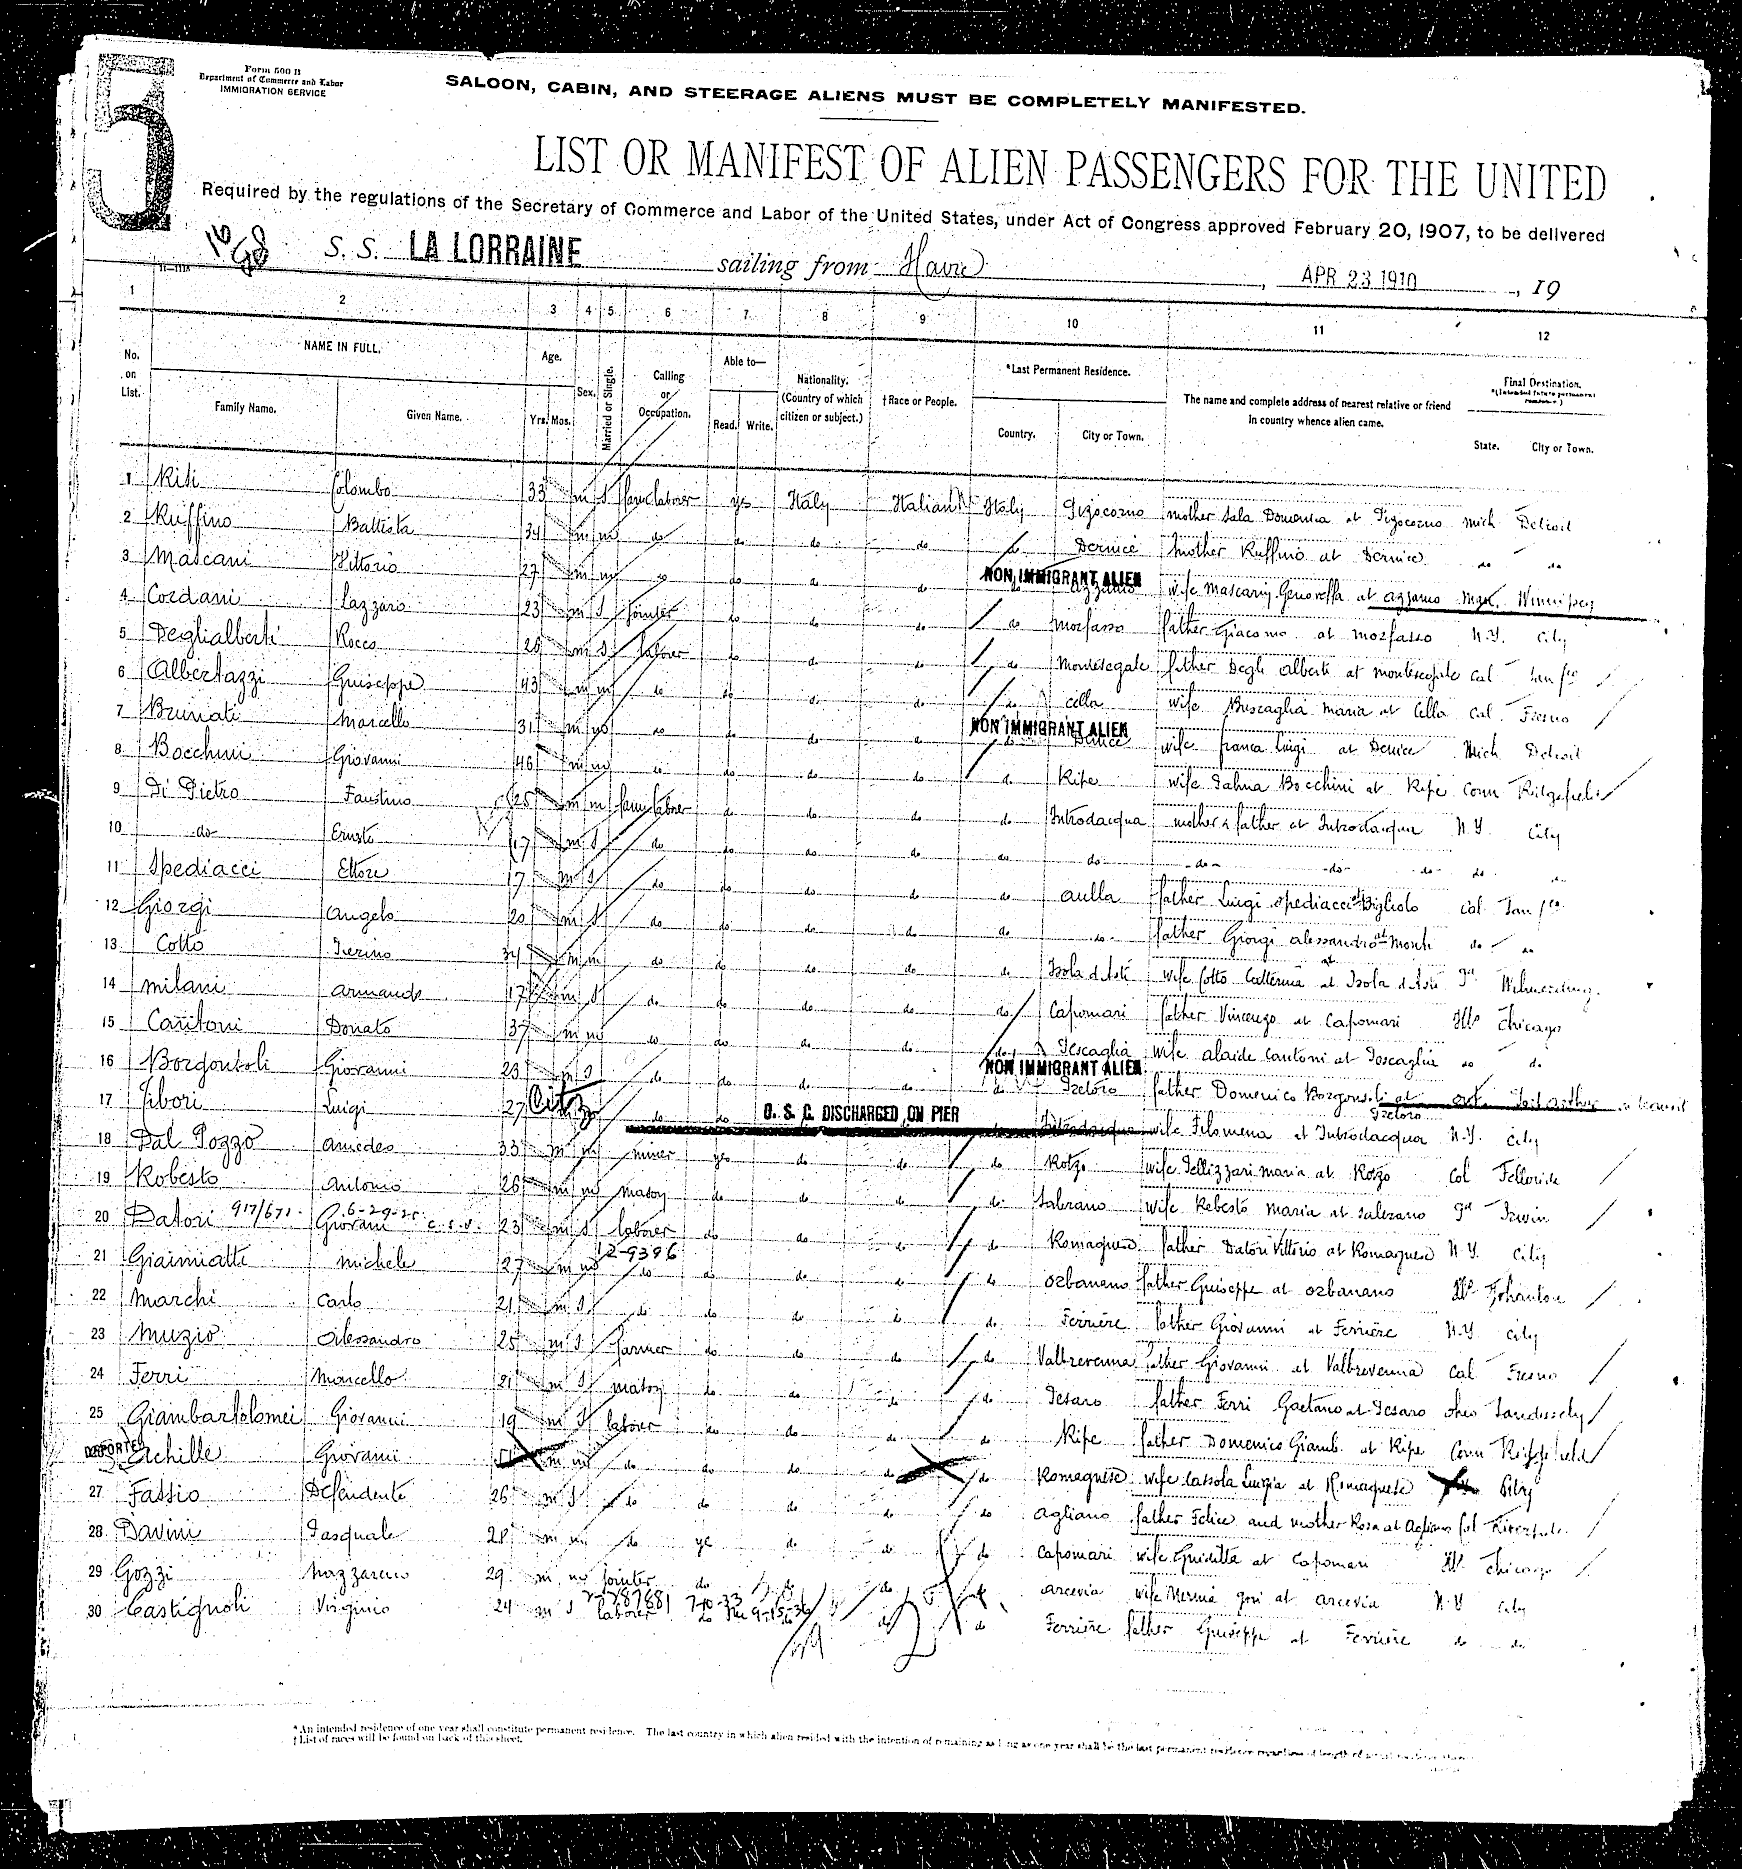 5
Form 500 B
Department of Commerce and Labor
IMMIGRATION SERVICE
SALOON, CABIN, AND STEERAGE ALIENS MUST BE COMPLETELY MANIFESTED.
LIST OR MANIFEST OF ALIEN PASSENGERS FOR THE UNITED
Required by the regulations of the Secretary of Commerce and Labor of the United States, under Act of Congress approved February 20, 1907, to be delivered
S. S. LA LORRAINE sailing from Havre, APR 23 1910, 19
1 2 3 4 5 6 7 8 9 10 11 12
No. on List. NAME IN FULL. Age. Sex. Married or Single. Calling or Occupation. Able to— Nationality. (Country of which citizen or subject.) †Race or People. *Last Permanent Residence. The name and complete address of nearest relative or friend in country whence alien came. Final Destination. *(Intended future permanent residence.)
Family Name. Given Name. Yrs. Mos. Read. Write. Country. City or Town. State. City or Town.
1 Risi Colombo 33 m S farm laborer yes Italy Italian N Italy mother Sala Domenica at mich Detroit
2 Ruffino Battista 34 m m do do do do do Dernice mother Ruffino at Dernice do do
3 Mascani Vittorio 27 m m do do do do NON IMMIGRANT ALIEN azzano wife Mascani Genoveffa at azzano Man. Winnipeg
4 Cordani Lazzaro 23 m S jointer do do do do morfasso father Giacomo at morfasso N.Y. City
5 Deglialberti Rocco 28 m S laborer do do do do montesegale father Degli Alberti at montesegale Cal San fco
6 Albertazzi Guiseppe 43 m m do do do do do cella wife Buscaglia maria at Cella Cal. Fresno
7 Brunati marcello 31 m do do do do NON IMMIGRANT ALIEN do Dernice wife franca Luigi at Dernice Mich Detroit
8 Bocchini Giovanni 46 m m do do do do do Ripe wife Bocchini at Ripe Conn Ridgefield
9 Di Pietro Faustino 25 m m farm laborer do do do do Introdacqua mother & father at Introdacqua N.Y. City
10 do Ernesto 17 m S do do do do do do do do do do
11 Spediacci Ettore 17 m S do do do do do aulla father Luigi Spediacci at Bigliolo Cal San fco
12 Giorgi angelo 20 m S do do do do do do father Giorgi alessandro at Monti do do
13 Cotto 34 m m do do do do do Isola d'Asti wife Cotto Catterina at Isola d'Asti Pa Wilmerding
14 milani armando 17 m S do do do do do Capomari father Vincenzo at Capomari Ills Chicago
15 Cantoni Donato 37 m m do do do do do Pescaglia wife alaide Cantoni at Pescaglia do do
16 Borgonsoli Giovanni 23 m S do do do do NON IMMIGRANT ALIEN do Pretoro father Domenico Borgonsoli at Pretoro Ont. Port Arthur in transit
17 Luigi 27 Citz do do U. S. C. DISCHARGED ON PIER do Introdacqua wife Filomena at Introdacqua N.Y. City
18 Dal Pozzo amedeo 33 m m miner yes do do do Rotzo wife Pellizzari maria at Rotzo Col Telluride
19 Robesto antonio 26 m m do do do do Salerano wife Robesto maria at Salerano Pa Irwin
20 Datori 917/671 6-29-25 Giovanni 23 m S laborer do do do do Romagnese father Datori Vittorio at Romagnese N.Y. City
21 Giaimiatti michele 27 m m 12-9396 do do do do do ozbanano father Guiseppe at ozbanano
22 marchi Carlo 21 m S do do do do do Ferriere father Giovanni at Ferriere N.Y. City
23 Muzio alessandro 25 m S farmer do do do do Valbrevenna father Giovanni at Valbrevenna Cal Fresno
24 Ferri marcello 21 m S do do do do Pesaro father Ferri Gaetano at Pesaro Ohio
25 Giambartolomei Giovanni 19 m S laborer do do do do Ripe father Domenico Giamb. at Ripe Conn Ridgefield
DEPORTED Achille Giovanni m m do do do do do Romagnese wife Cassola Luigia at Romagnese City
27 Fassio Defendente 26 m S do do do do do agliano father Felice and mother Rosa at Agliano Col
28 Davini Pasquale 28 m m do yes do do do Capomari wife Guiditta at Capomari Ills Chicago
29 Gozzi Nazzareno 29 m m jointer do do do do arcevia wife at arcevia N.Y City
30 Castignoli Virginio 24 m S laborer do do do Ferriere father Guiseppe at Ferriere do do
*An intended residence of one year shall constitute permanent residence. The last country in which alien resided with the intention of remaining as long as one year shall be the last permanent residence regardless of length of actual residence there.
†List of races will be found on back of this sheet.